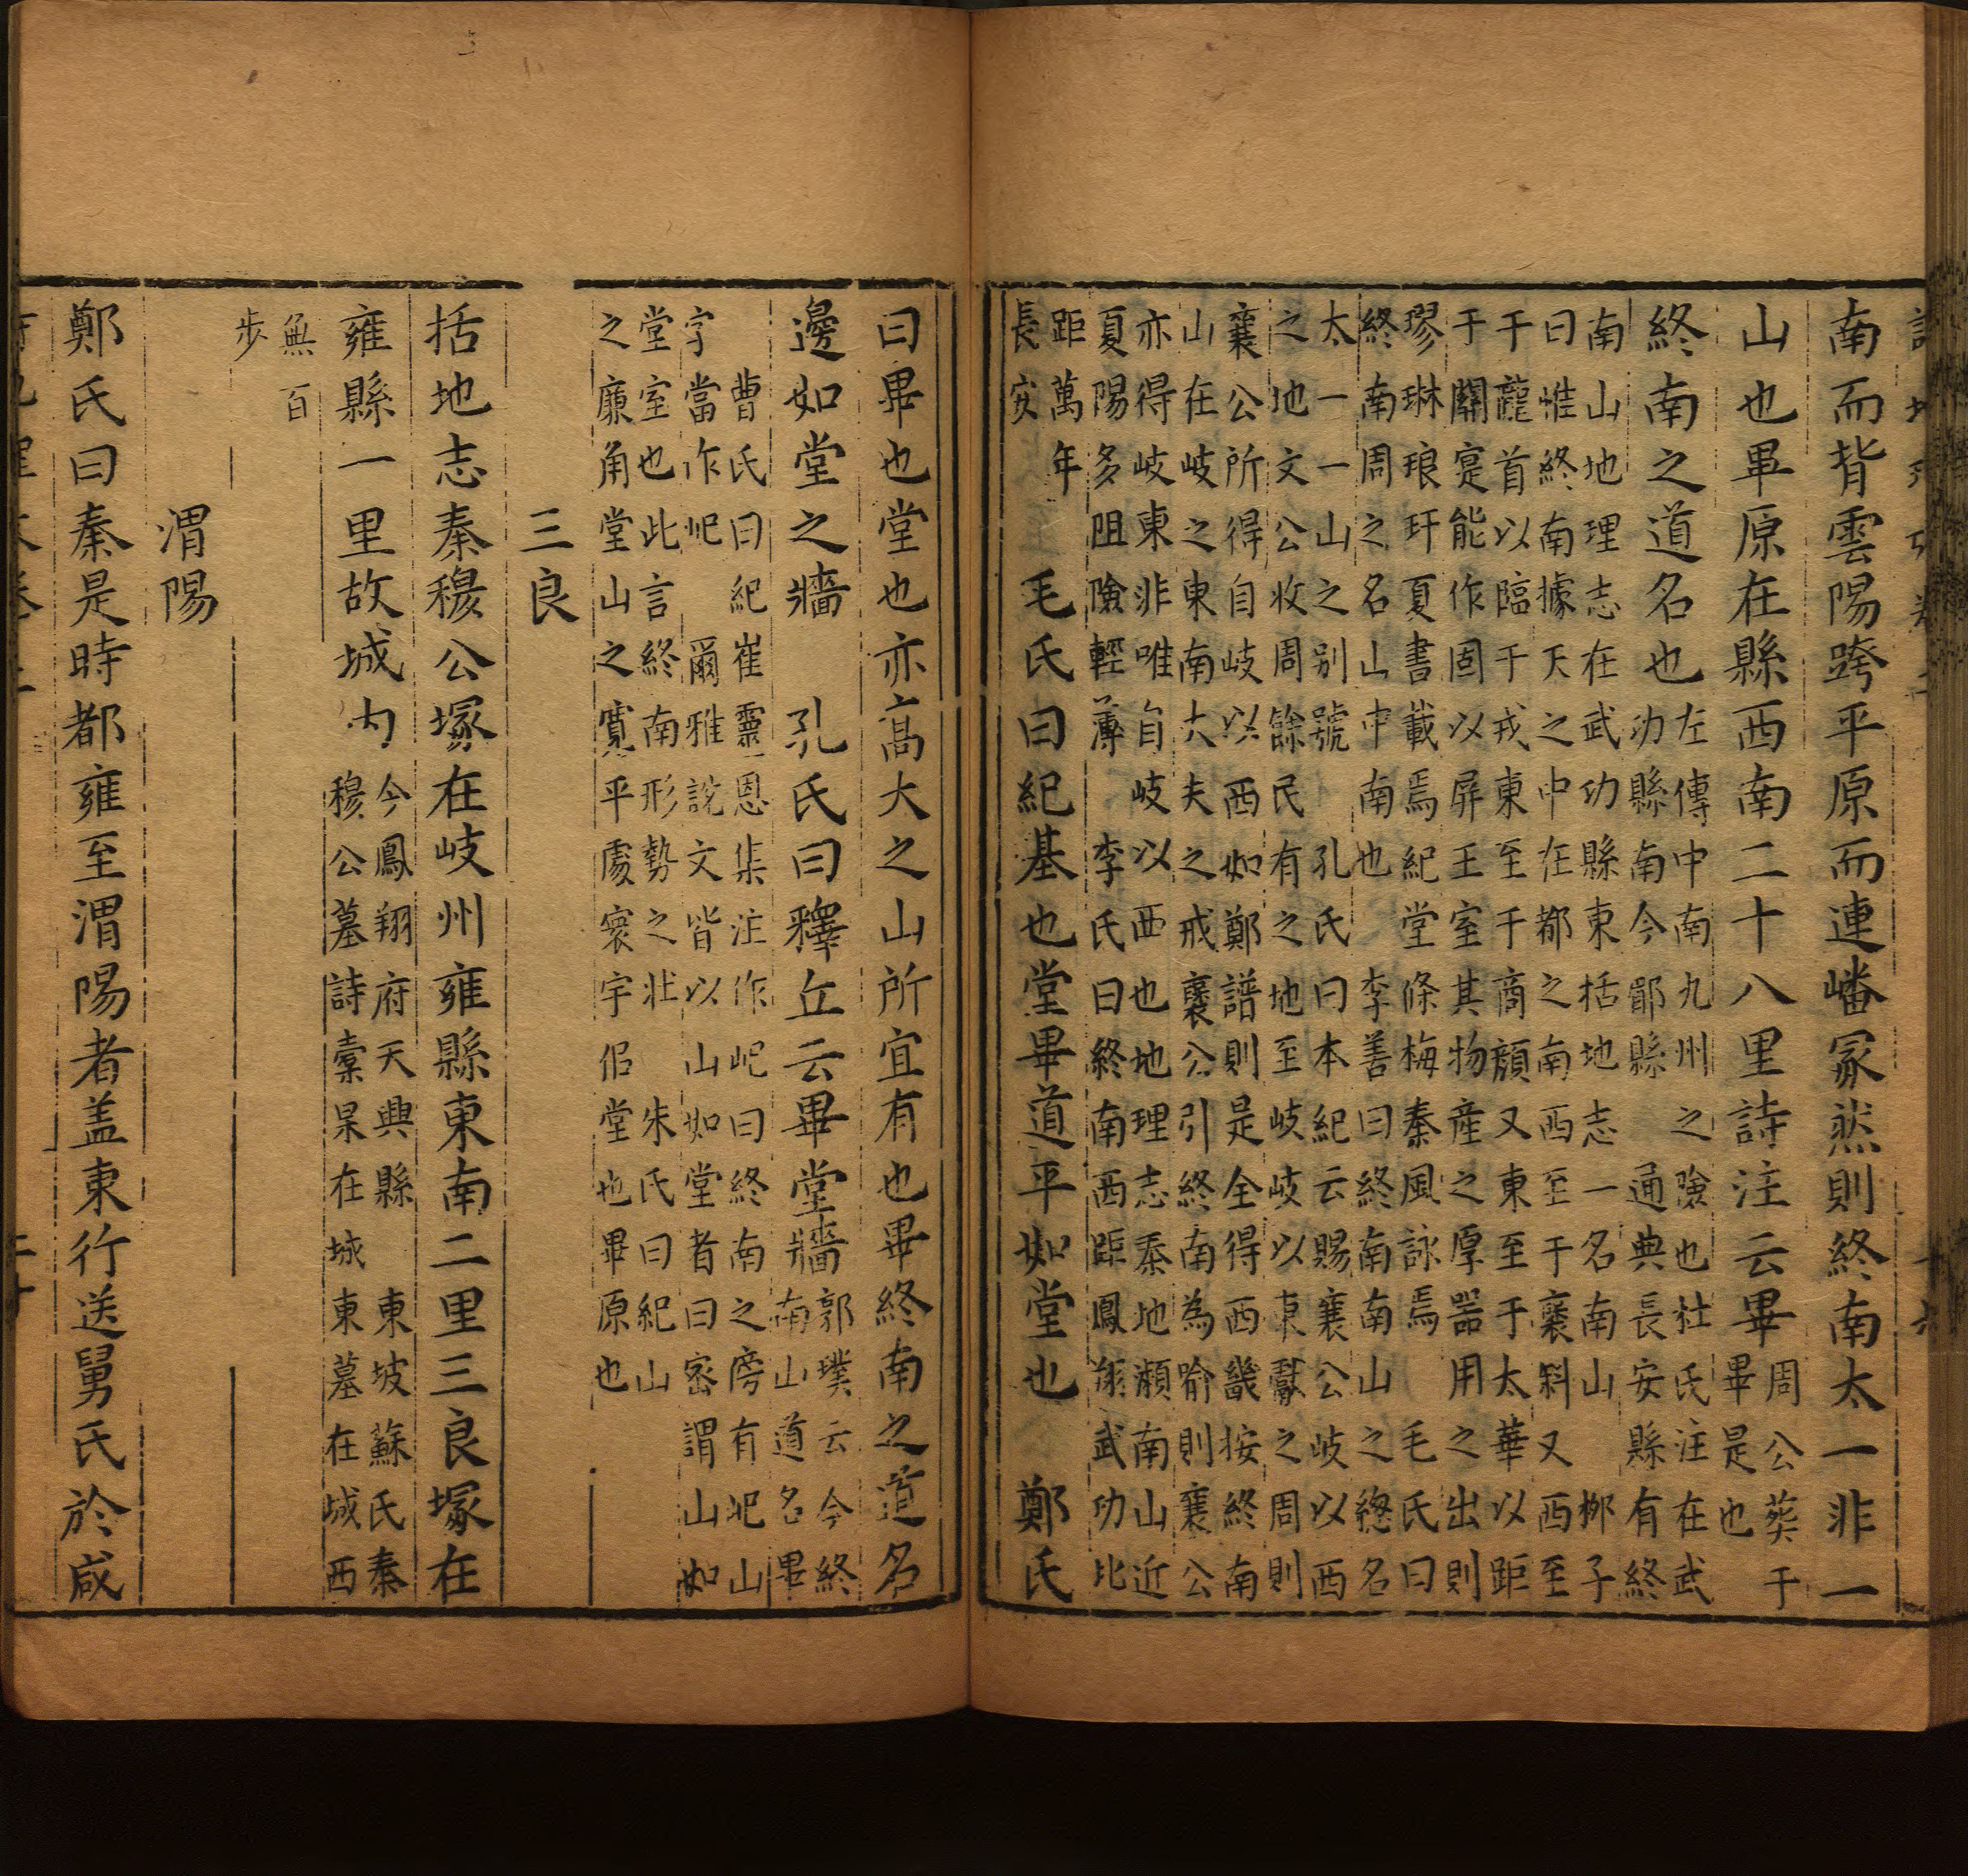 南而背雲陽跨平原而連嶓冢然則終南太一非一
山也畢原在縣西南二十八里詩注云畢
周公葬于
畢是也
終南之道名也
左傳中南九州之險也杜氏注在武
功縣南今郿縣 通典長安縣有終
南山地理志在武功縣東括地志一名南山 柳子
曰惟終南據天之中在都之南西至于襃斜又西至
于隴首以臨于戎東至于商顔又東至于太華以距
于關寔能作固以屏王室其物產之厚噐用之出則
璆琳琅玕夏書載焉紀堂條梅秦風詠焉 毛氏曰
終南周之名山中南也 李善曰終南南山之緫名
太一一山之别號 孔氏曰本紀云賜襄公岐以西
之地文公收周餘民有之地至岐岐以東獻之周則
襄公所得自岐以西如鄭譜則是全得西畿按終南
山在岐之東南大夫之戒襄公引終南為喻則襄公
亦得岐東非唯自岐以西也地理志秦地瀕南山近
夏陽多阻險輕薄 李氏曰終南西距鳳翔武功比
距萬年
長安
毛氏曰紀基也堂畢道平如堂也 鄭氏
曰畢也堂也亦高大之山所宜有也畢終南之道名
邊如堂之牆 孔氏曰釋丘云畢堂牆
郭璞云今終
南山道名畢
曹氏曰紀崔靈恩集注作屺曰終南之旁有屺山
字當作屺 爾雅說文皆以山如堂者曰密謂山如
堂室也此言終南形勢之壯 朱氏曰紀山
之廉角堂山之寬平處寰宇佀堂也畢原也
三良
括地志秦穆公塚在岐州雍縣東南二里三良塚在
雍縣一里故城內
今鳳翔府天興縣 東坡蘇氏秦
穆公墓詩橐泉在城東墓在城西
無百
步
渭陽
鄭氏曰秦是時都雍至渭陽者盖東行送舅氏於咸